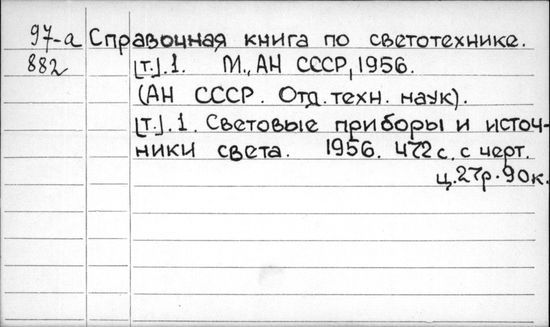 97-а Справочная книга по светотехнике.
882 [т.].1. М., АН СССР, 1956.
(АН СССР. Отд. техн. наук).
[т.].1. Световые приборы и источ-
ники света. 1956. 472 с. с черт.
ц. 27р. 90к.